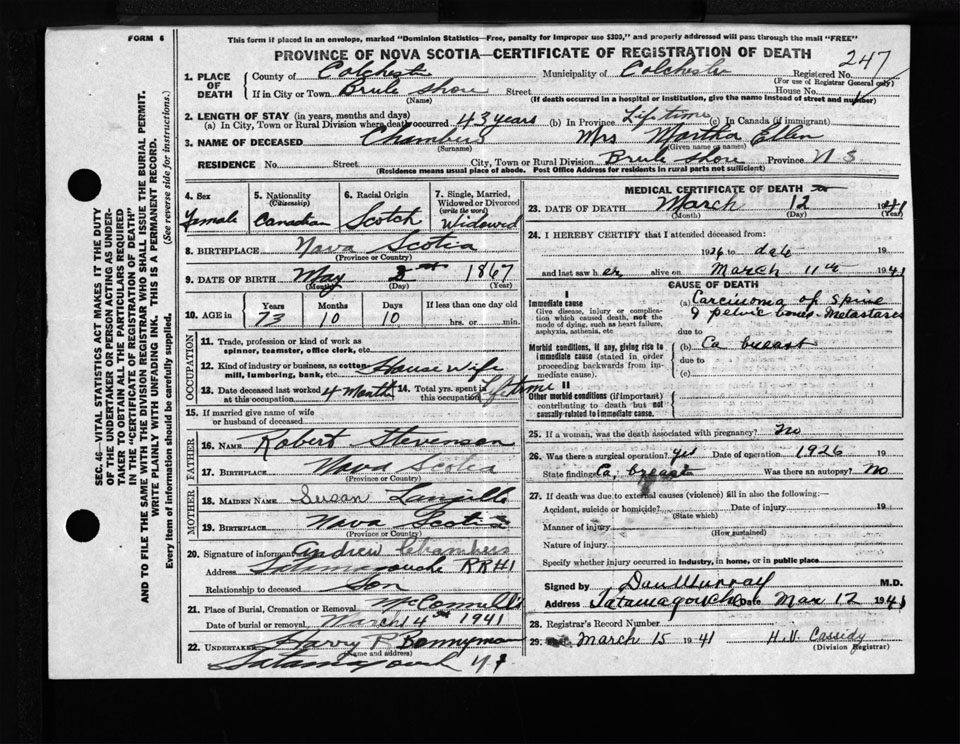 FORM 6
This form if placed in an envelope, marked "Dominion Statistics—Free, penalty for improper use $300," and properly addressed will pass through the mail "FREE"
PROVINCE OF NOVA SCOTIA—CERTIFICATE OF REGISTRATION OF DEATH
247
SEC. 46—VITAL STATISTICS ACT MAKES IT THE DUTY
OF THE UNDERTAKER OR PERSON ACTING AS UNDER-
TAKER TO OBTAIN ALL THE PARTICULARS REQUIRED
IN THE "CERTIFICATE OF REGISTRATION OF DEATH"
AND TO FILE THE SAME WITH THE DIVISION REGISTRAR WHO SHALL ISSUE THE BURIAL PERMIT.
WRITE PLAINLY WITH UNFADING INK. THIS IS A PERMANENT RECORD.
Every item of information should be carefully supplied. (See reverse side for instructions.)
1. PLACE OF DEATH County of Colchester Municipality of Colchester Registered No.
(For use of Registrar General only)
If in City or Town Brule Shore Street House No.
(Name) (If death occurred in a hospital or institution, give the name instead of street and number)
2. LENGTH OF STAY (in years, months and days)
(a) In City, Town or Rural Division where death occurred 43 years (b) In Province Lifetime (c) In Canada (if immigrant)
3. NAME OF DECEASED Chambers Mrs Martha Ellen
(Surname) (Given name or names)
RESIDENCE No. Street City, Town or Rural Division Brule Shore Province N S
(Residence means usual place of abode. Post Office Address for residents in rural parts not sufficient)
4. Sex Female
5. Nationality (Citizenship) Canadian
6. Racial Origin Scotch
7. Single, Married, Widowed or Divorced (write the word) Widowed
8. BIRTHPLACE Nova Scotia
(Province or Country)
9. DATE OF BIRTH May 1867
(Month) (Day) (Year)
10. AGE in Years 73 Months 10 Days 10 If less than one day old hrs. or min.
OCCUPATION
11. Trade, profession or kind of work as spinner, teamster, office clerk, etc.
12. Kind of industry or business, as cotton mill, lumbering, bank, etc. House Wife
13. Date deceased last worked at this occupation 4 Months 14. Total yrs. spent in this occupation Lifetime
15. If married give name of wife or husband of deceased
FATHER
16. NAME Robert Stevenson
17. BIRTHPLACE Nova Scotia
(Province or Country)
MOTHER
18. MAIDEN NAME Susan Langille
19. BIRTHPLACE Nova Scotia
(Province or Country)
20. Signature of informant Andrew Chambers
Address Tatamagouche RR#1
Relationship to deceased Son
21. Place of Burial, Cremation or Removal
Date of burial or removal March 14 1941
22. UNDERTAKER Harry P.
(Name and address)
Tatamagouche
MEDICAL CERTIFICATE OF DEATH
23. DATE OF DEATH March 12 1941
(Month) (Day) (Year)
24. I HEREBY CERTIFY that I attended deceased from:
1926 to date
and last saw her alive on March 11th 1941
CAUSE OF DEATH
I
Immediate cause
Give disease, injury or complication which caused death, not the mode of dying, such as heart failure, asphyxia, asthenia, etc
(a) Carcinoma of Spine & pelvic bones - Metastases
due to
Morbid conditions, if any, giving rise to immediate cause (stated in order proceeding backwards from immediate cause).
(b) Ca breast
due to
(c)
II
Other morbid conditions (if important) contributing to death but not causally-related to immediate cause.
25. If a woman, was the death associated with pregnancy? No
26. Was there a surgical operation? yes Date of operation 1926
State findings Ca. breast Was there an autopsy? No
27. If death was due to external causes (violence) fill in also the following:—
Accident, suicide or homicide? Date of injury 19
(State which)
Manner of injury
(How sustained)
Nature of injury
Specify whether injury occurred in industry, in home, or in public place
Signed by Dan Murray M.D.
Address Tatamagouche Date Mar 12 1941
28. Registrar's Record Number
29. March 15 1941 H. V. Cassidy
(Division Registrar)